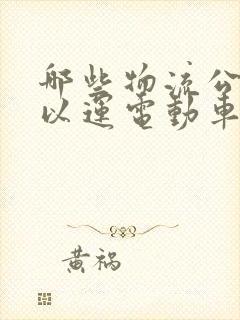 哪些物流公
以運電動車
黄祸